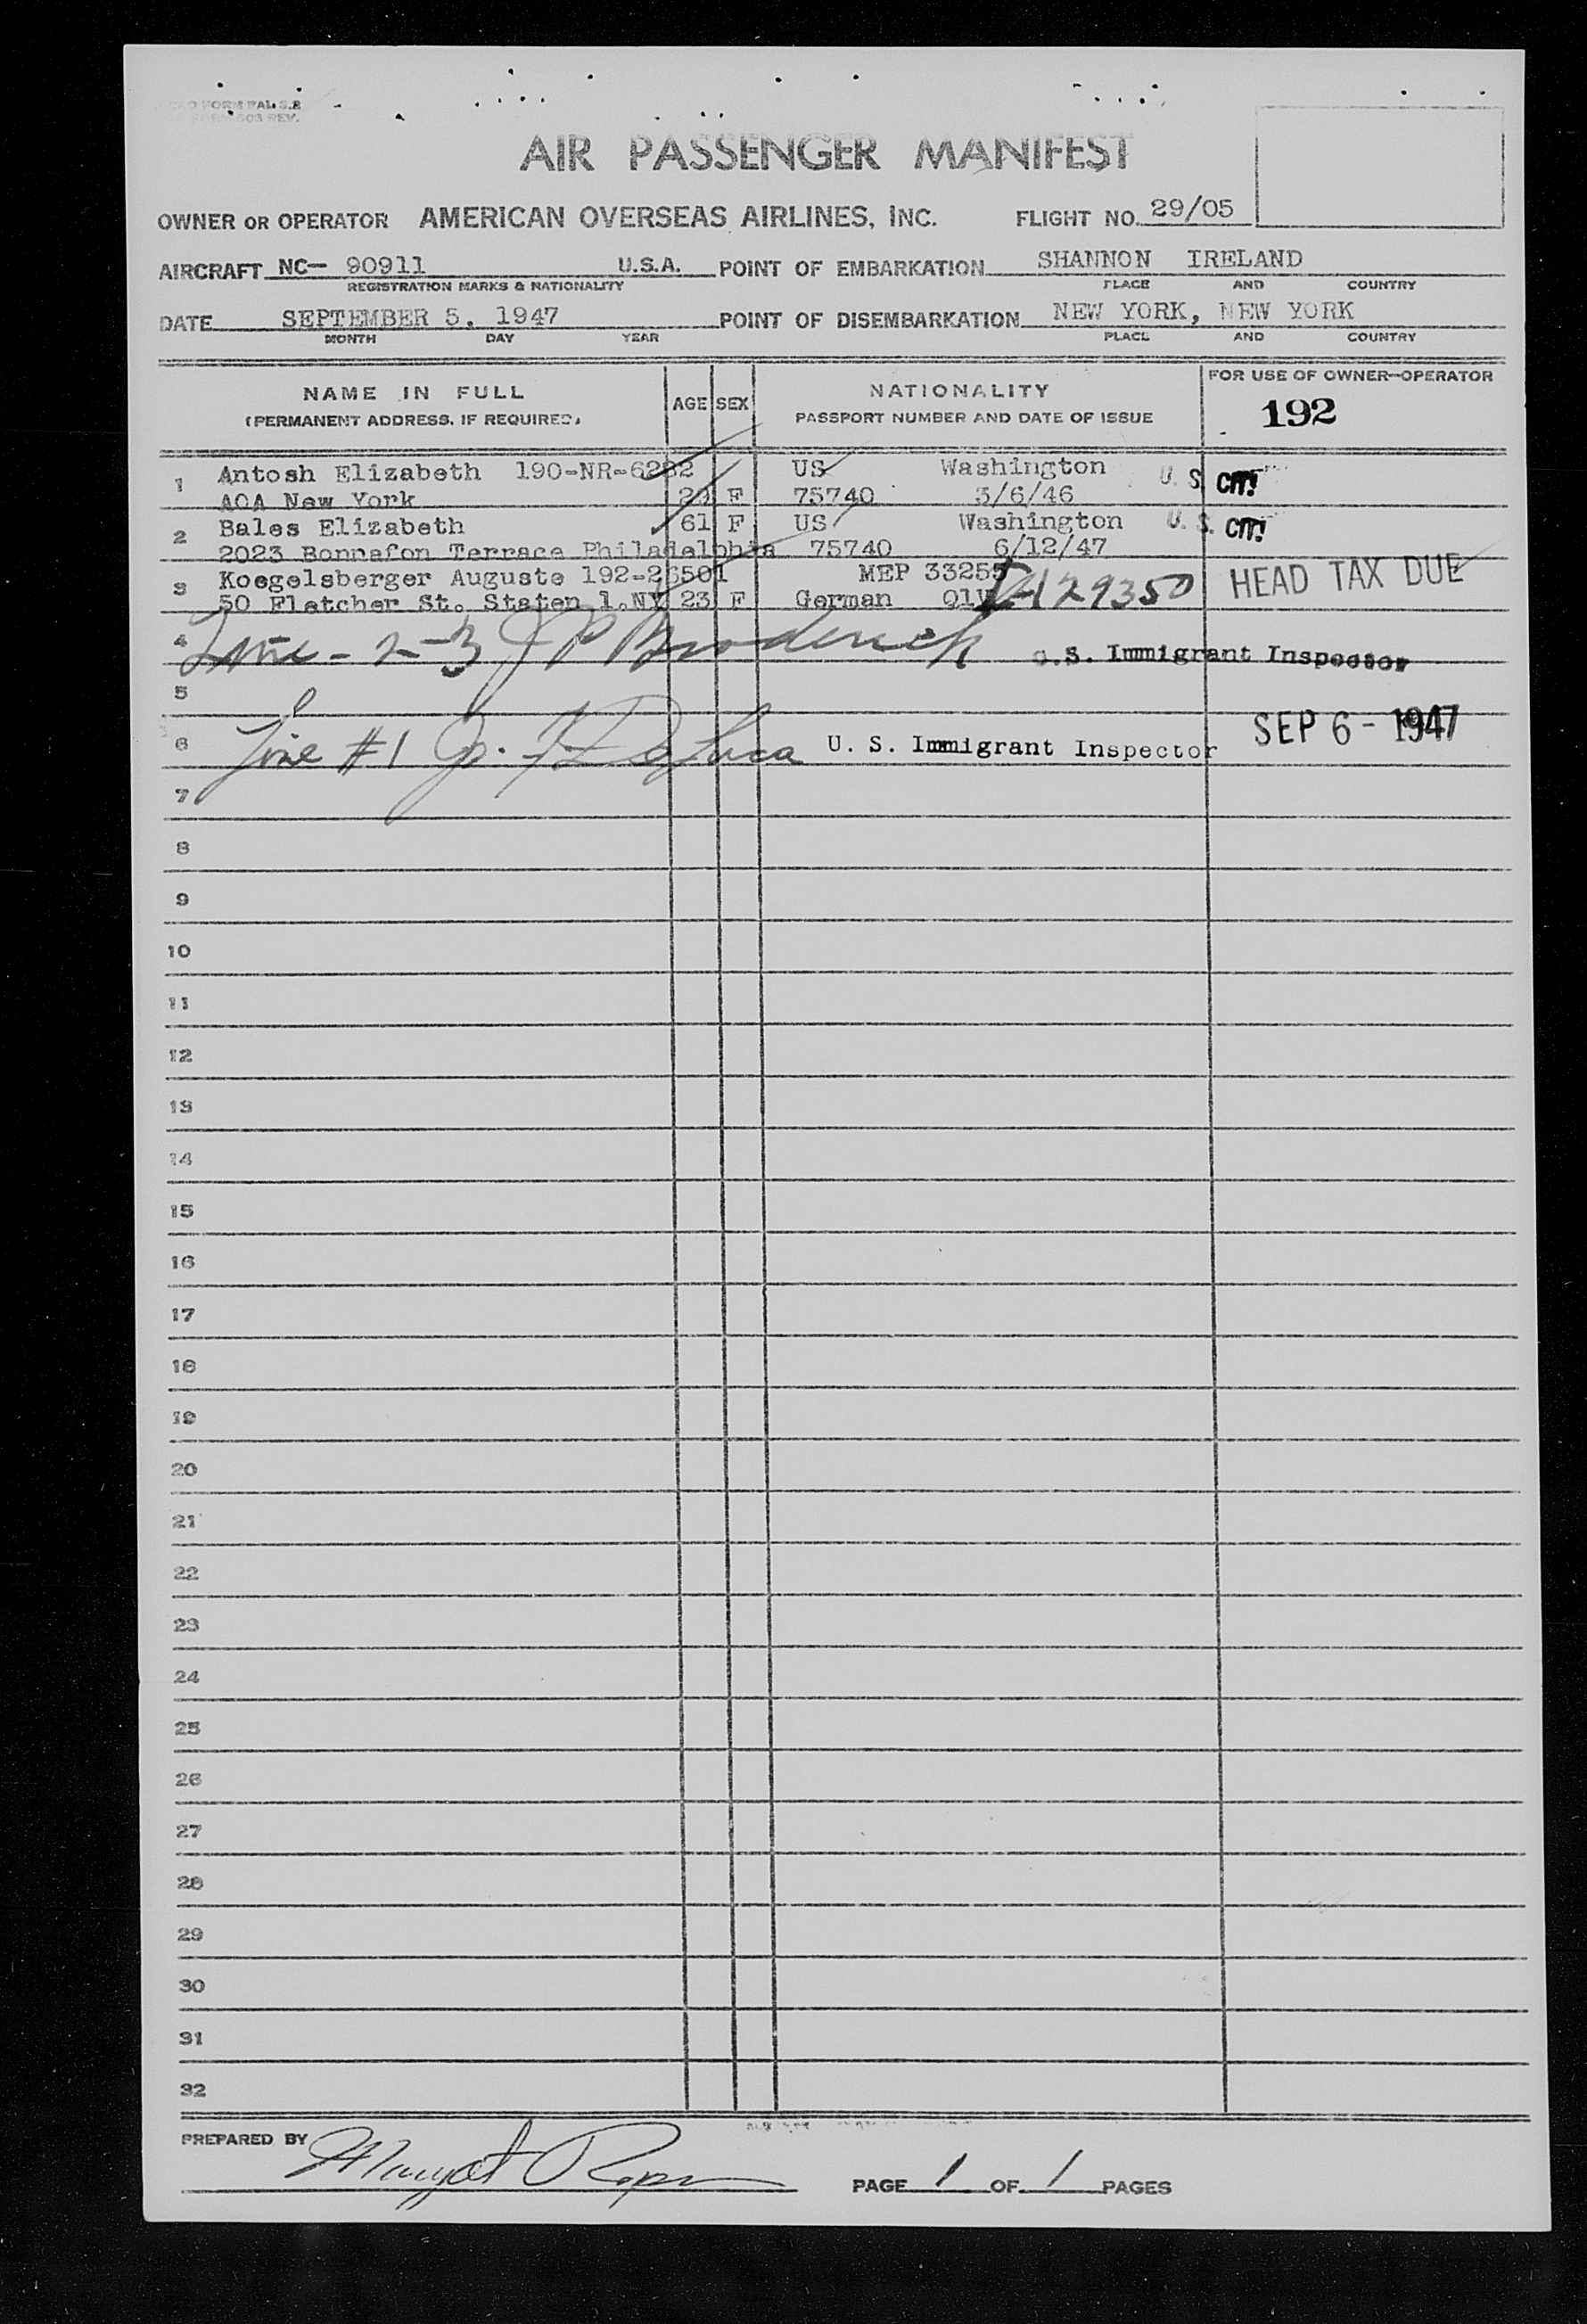 FORM PAL S.2
REV.
AIR PASSENGER MANIFEST
OWNER OR OPERATOR AMERICAN OVERSEAS AIRLINES, INC. FLIGHT NO. 29/05
AIRCRAFT NC— 90911 U.S.A. POINT OF EMBARKATION SHANNON IRELAND
REGISTRATION MARKS & NATIONALITY PLACE AND COUNTRY
DATE SEPTEMBER 5, 1947 POINT OF DISEMBARKATION NEW YORK, NEW YORK
MONTH DAY YEAR PLACE AND COUNTRY
NAME IN FULL AGE SEX NATIONALITY FOR USE OF OWNER—OPERATOR
(PERMANENT ADDRESS, IF REQUIRED) PASSPORT NUMBER AND DATE OF ISSUE 192
1 Antosh Elizabeth 190-NR-6282 US Washington U. S. CIT.
AOA New York F 75740 3/6/46
2 Bales Elizabeth 61 F US Washington U. S. CIT.
2023 Bonnafon Terrace Philadelphia 75740 6/12/47
3 Koegelsberger Auguste 192-26501 MEP 33255 HEAD TAX DUE
50 Fletcher St. Staten I.NY 23 F German QIV 429350
4 Line - 2-3 J P Broderick U.S. Immigrant Inspector
5
6 Line #1 Jos. F. DeLuca U. S. Immigrant Inspector SEP 6 - 1947
7
8
9
10
11
12
13
14
15
16
17
18
19
20
21
22
23
24
25
26
27
28
29
30
31
32
PREPARED BY Margot
PAGE 1 OF 1 PAGES